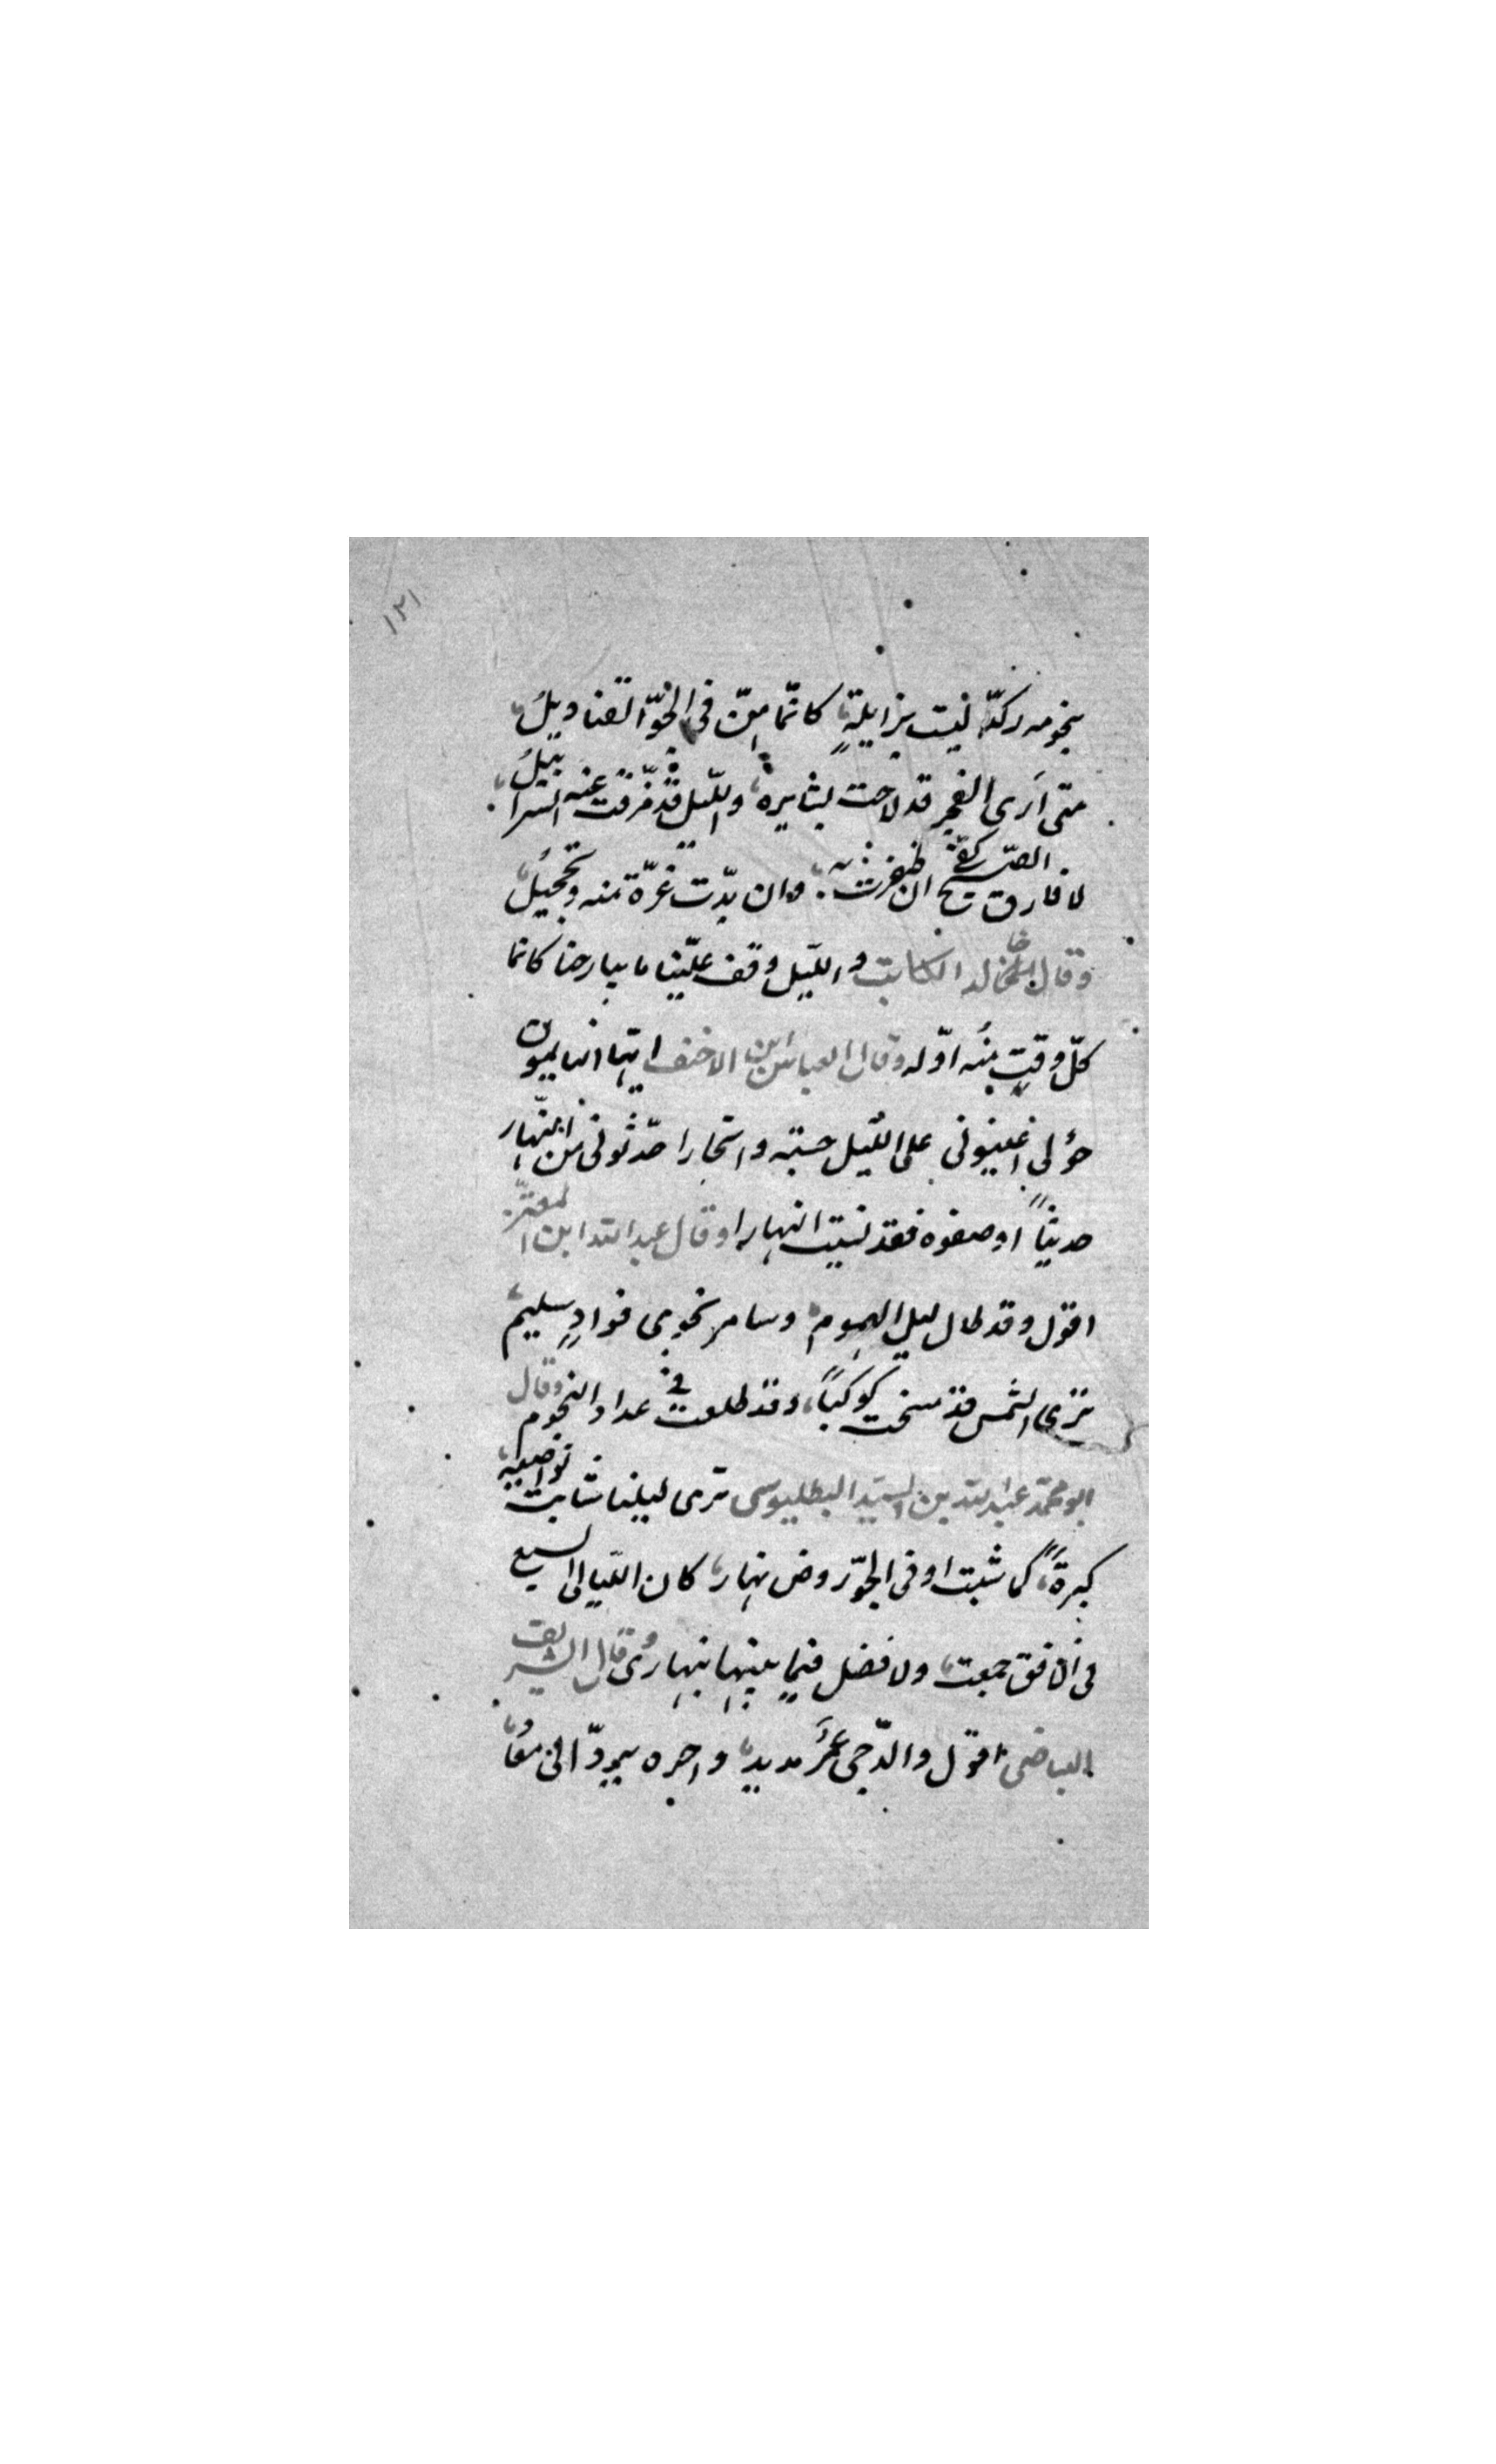 ١٢١
نجومه ركدّ ليست بزايلةٍ كانّما هنّ فى الجوّ القناديلُ
متى اَرى الفجر قد لاحت بشايره والليل قد مزّقت عنه السرابيلُ
لا فارق الصّبح كفّى ان ظفرت به وان بدّت غرّة منه وتحجيلُ
وقال خالد الكاتب والليل وقف علينا ما يبارحنا كانما
كلّ وقتٍ منُه اوّله وقال العباس ابن الاحنف ايّها النايمون
حولى اعينونى على الليل حسبة واتجارا حدّثونى عن النّهار
حديثاً اوصفوه فقد نسيت النهارا وقال عبد الله ابن المعتزّ
اقول وقد طال ليل الهموم وسامر نجومى فوادٍ سليم
ترى الشمس قد مسخت كوكباً وقد طلعت فى عداد النجوم وقال
ابو محمّد عبد الله بن السيّد البطليوسى ترى ليلنا شابت نواصيه
كبرةً كما شبت او فى الجوّ روض نهار كان الليالى السبع
فى الافق جمعت ولا فضل فيما بينها بنهار وقال الشريف
البياضى اقول والدّجى عمرٌ مديد واخره يردّ الى معُا